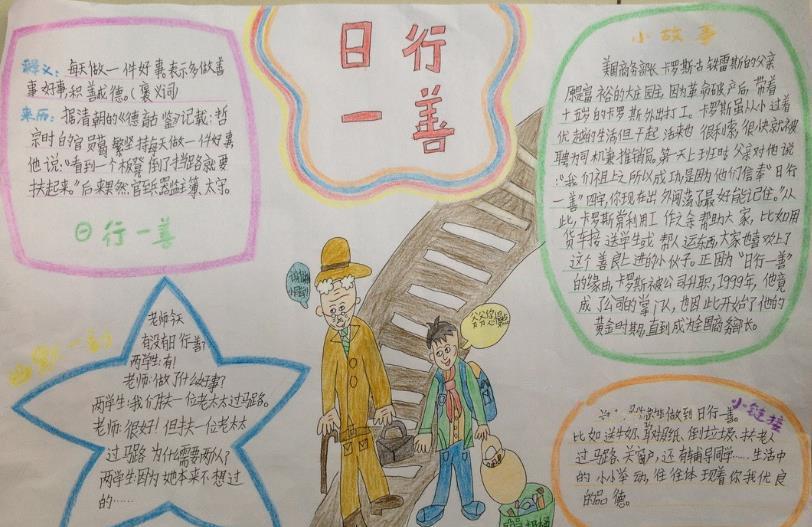 日行
一善
释义：每天做一件好事,表示多做善
事好事,积善成德。(褒义词)
来历：据清朝的《德育鉴》记载：哲
宗时的官员葛繁坚持每天做一件好事
他说："看到一个板凳倒了挡路就要
扶起来。"后来果然官至 太守。
日行一善
小故事
美国商务部长卡罗斯古铁雷斯的父亲
原是富裕的大庄园主,因为革命破产后,带着
十五岁的卡罗斯外出打工。卡罗斯虽从小过着
优越的生活但干起活来也很利索,很快就被
聘为司机兼推销员。第一天上班时父亲对他说
："我们祖上之所以成功是因为他们信奉"日行
一善"四字,你现在出外闯荡了最好能记住。"从
此,卡罗斯常利用工作之余帮助大家,比如用
货车接送学生或帮人运东西,大家也喜欢上了
这个善良上进的小伙子。正因为"日行一善"
的缘由,卡罗斯被公司升职,1999年,他竟
成了公司的掌门人,也因此开始了他的
黄金时期,直到成为全国商务部长。
幽默一刻
老师:今天
有没有日行一善？
两学生:有!
老师:做了什么好事?
两学生:我们扶一位老太太过马路。
老师:很好!但扶一位老太太
过马路为什么需要两人?
两学生:因为她本来不想过
的……
小链接
做到日行一善。
比如送牛奶、剪胡纸、倒垃圾、扶老人
过马路、关窗户,还有辅导同学……生活中
的小小举动,往往体现着你我优良
的品德。